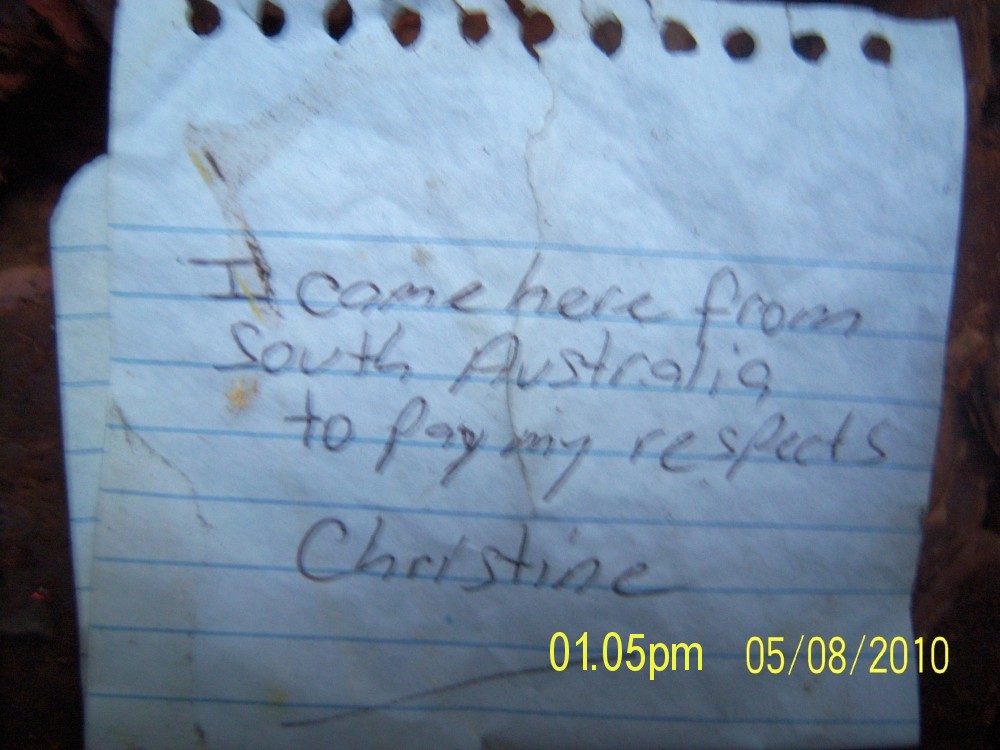 I came here from
South Australia
to pay my respects
Christine
01.05pm 05/08/2010